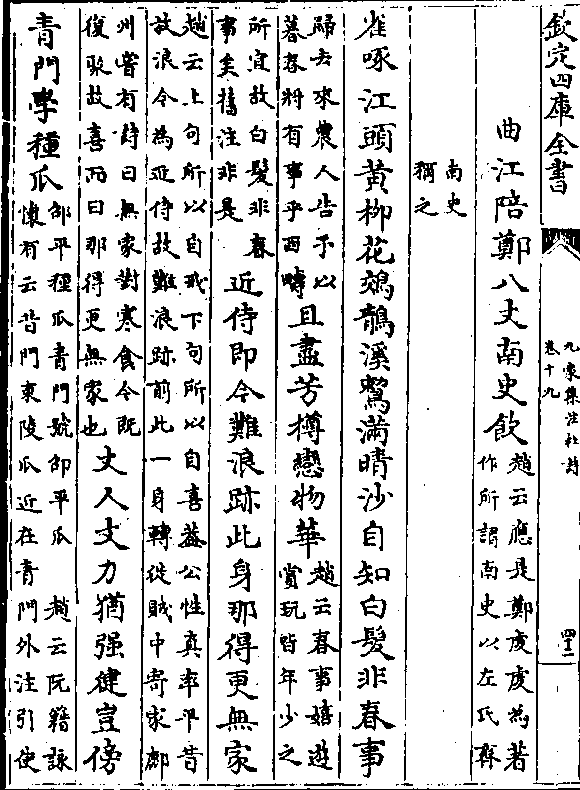 欽定四庫全書
九家集注杜詩
卷十九
曲江陪鄭八丈南史飲
趙云應是鄭虔虔為著
作所謂南史以左氏齊
南史
稱之
雀啄江頭黄柳花䴔鶄溪鷘滿晴沙自知白髮非春事
歸去來農人告予以
暮春將有事乎西疇
且盡芳樽戀物華
趙云春事嬉遊
賞玩皆年少之
所宜故白髮非春
事矣舊注非是
近侍即今難浪跡此身那得更無家
趙云上句所以自戒下句所以自喜葢公性真率平昔
放浪今為近侍故難浪跡前此一身轉從賊中寄家鄜
州嘗有詩曰無家對寒食今既
復聚故喜而曰那得更無家也
丈人文力猶强健豈傍
青門學種瓜
邵平種瓜青門號邵平瓜 趙云阮籍詠
懷有云昔門東陵瓜近在青門外注引使